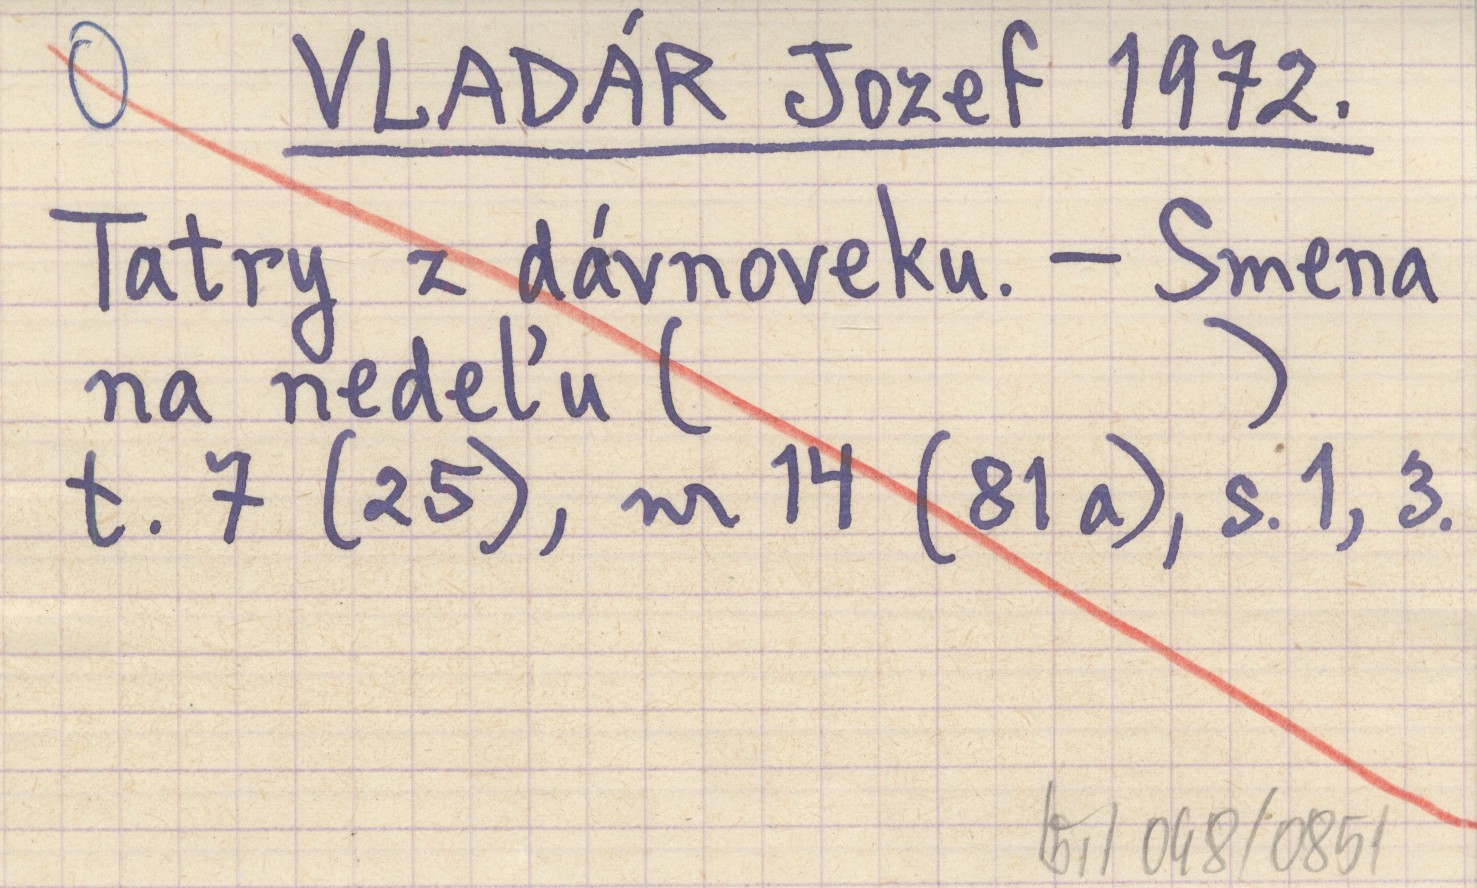 O VLADÁR Jozef 1972.
Tatry z dávnoveku. – Smena
na nedeľu ( )
t. 7 (25), nr 14 (81a), s. 1, 3.
048/0851